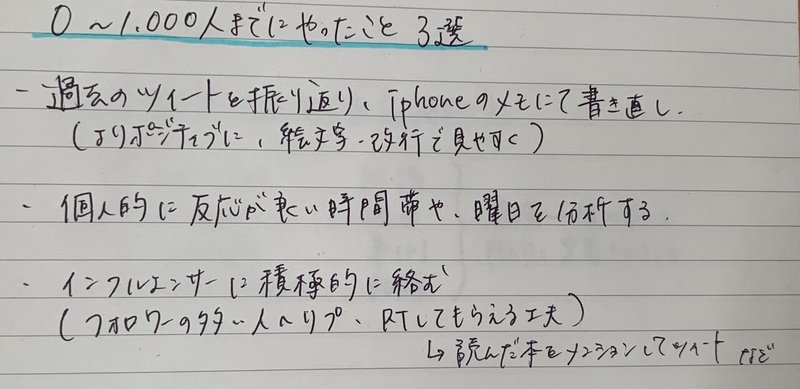 0～1.000人までにやったこと 3選
- 過去のツイートを振り返り、iphoneのメモにて書き直し.
(よりポジティブに、絵文字・改行で見やすく)
・ 個人的に反応が良い時間帯や、曜日を分析する.
・ インフルエンサーに積極的に絡む
(フォロワーの多い人へリプ、RTしてもらえる工夫)
↳ 読んだ本をメンションしてツイート など